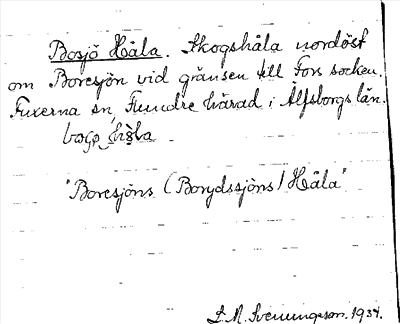 Bosjö Håla. Skogshåla nordöst
om Boresjön vid gränsen till Fors socken.
Fuxerna sn, Flundre härad i Älfsborgs län.
håla
"Boresjöns (Borydssjöns) Håla"
S. M. Svenungsson. 1934.